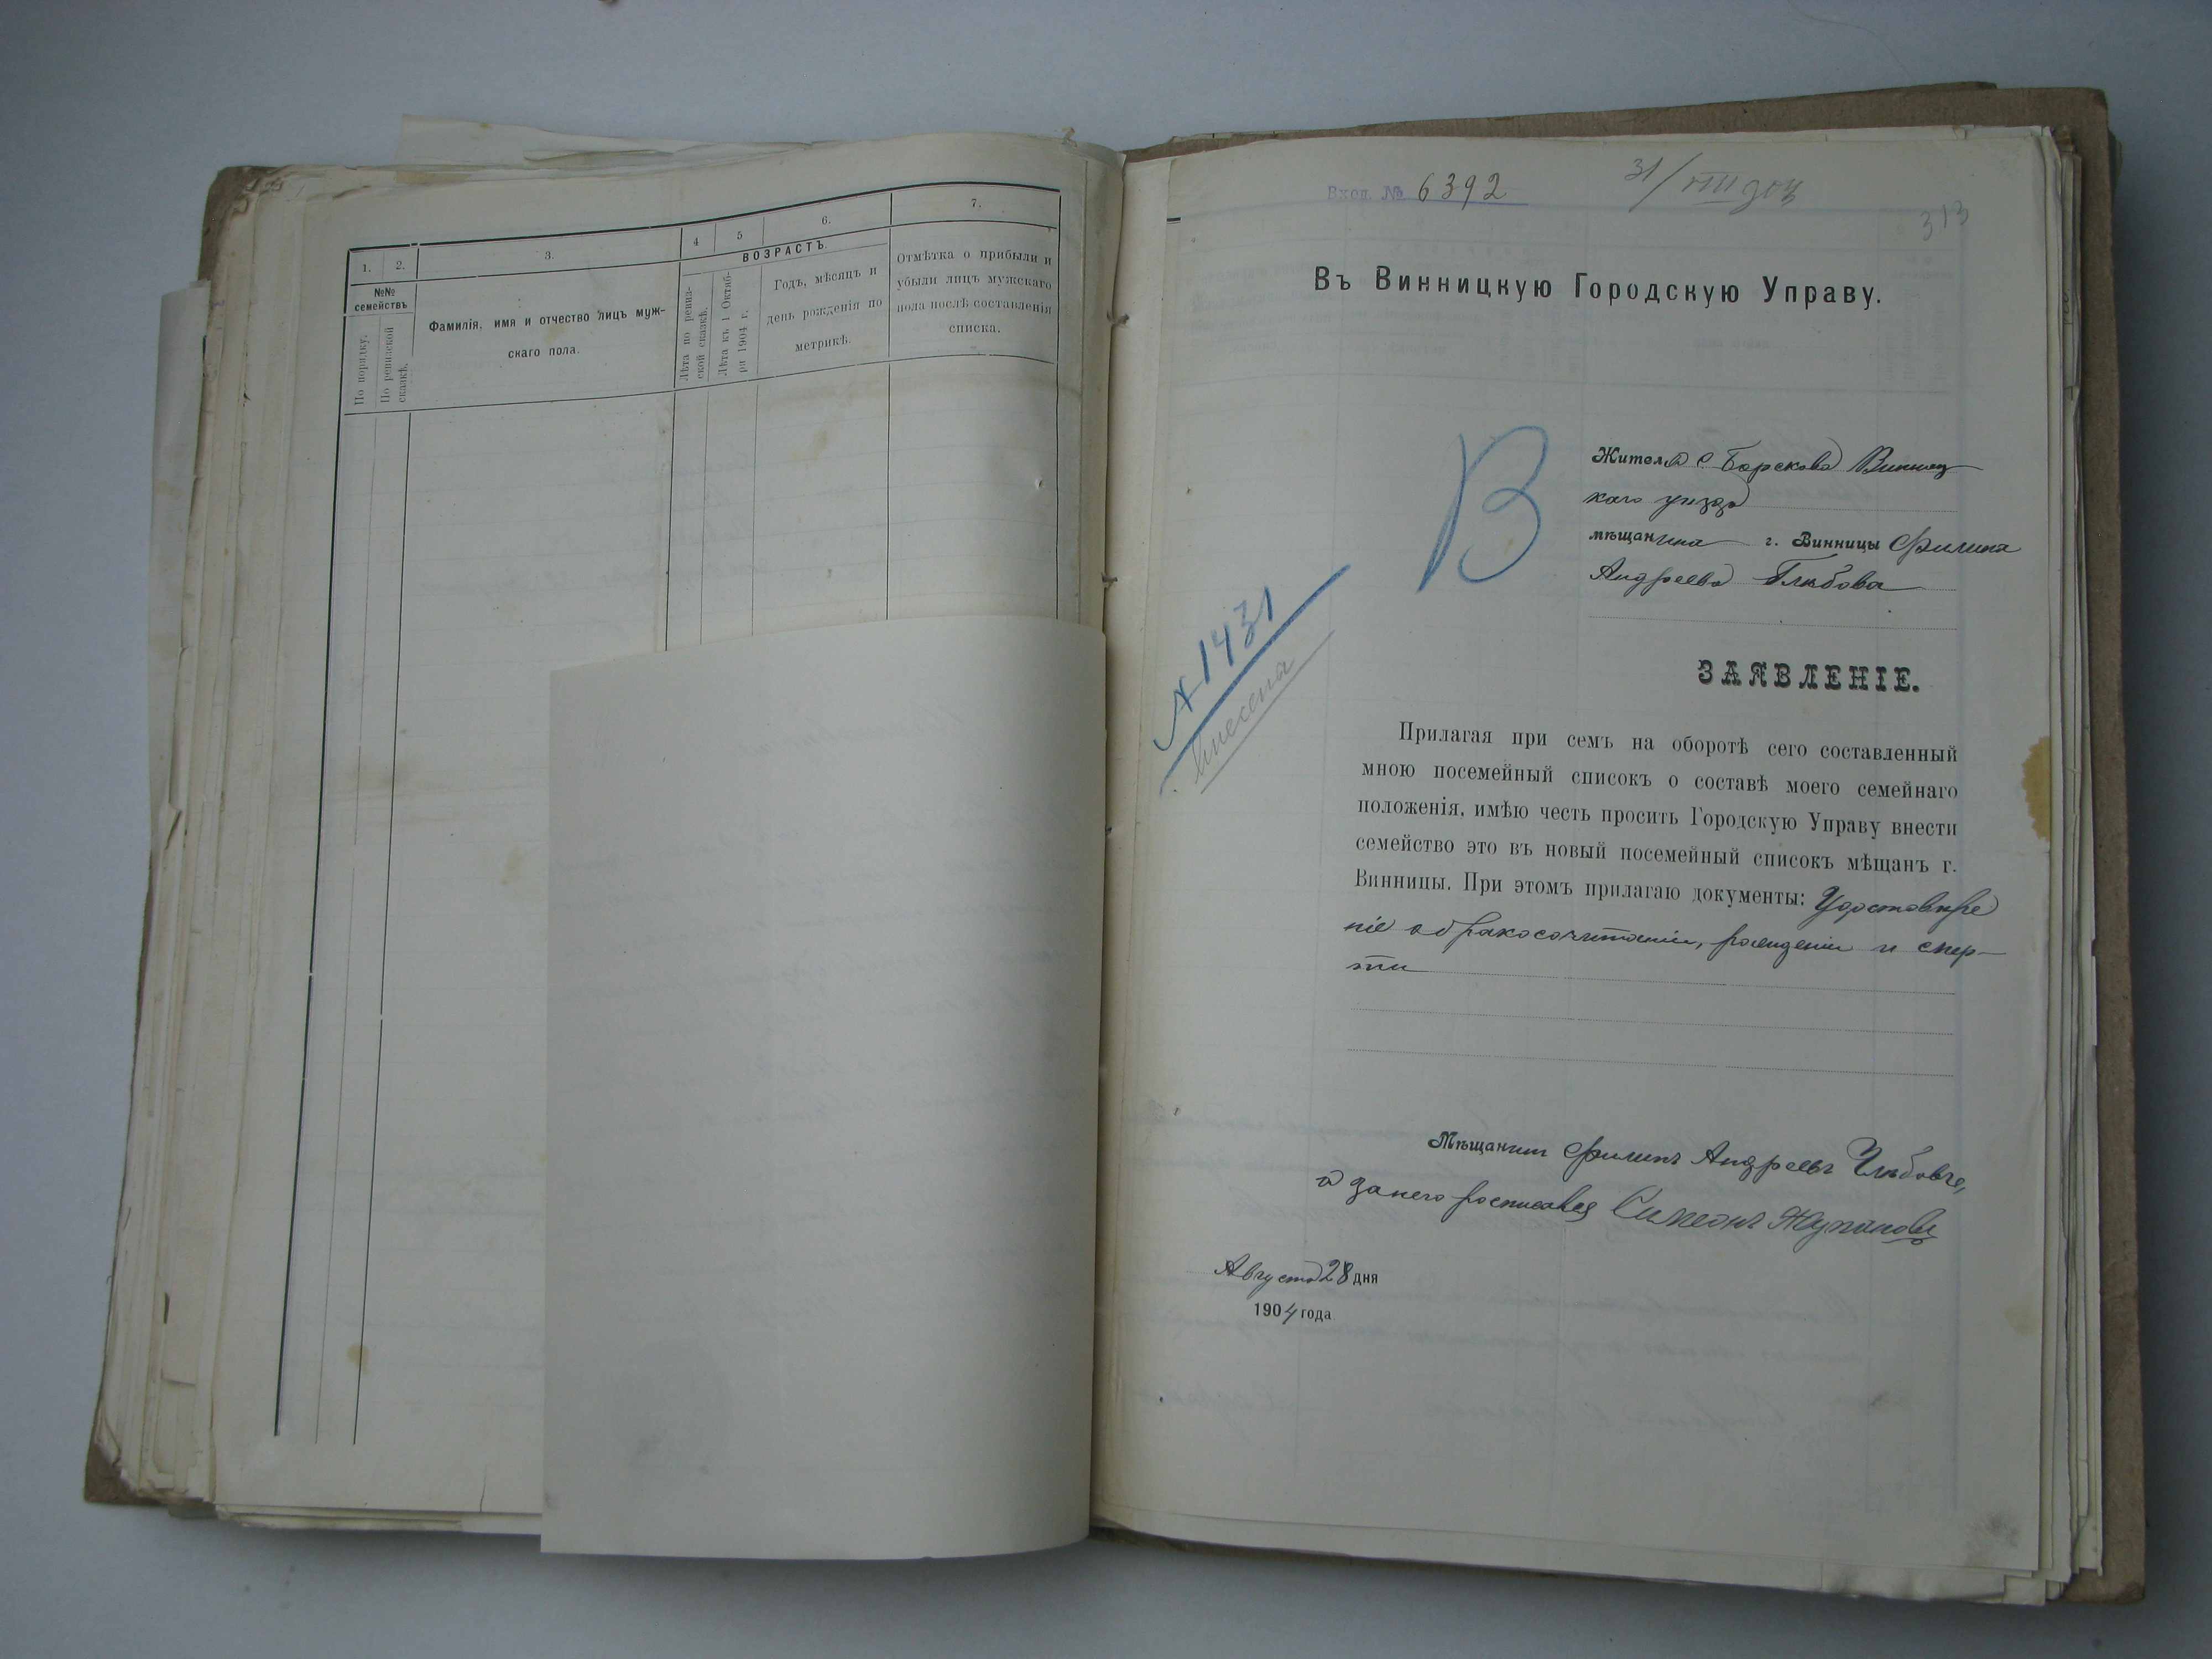 1.
2.
3.
4
5
6.
7.
ВОЗРАСТЪ.
№№
семействъ
По порядку.
По ревизской
сказкѣ.
Фамилія, имя и отчество лицъ муж-
скаго пола.
Лѣта по ревиз-
ской сказкѣ.
Лѣта къ 1 Октяб-
ря 1904 г.
Годъ, мѣсяцъ и
день рожденія по
метрикѣ.
Отмѣтка о прибыли и
убыли лицъ мужскаго
пола послѣ составленія
списка.
Вход. № 6392
31/VIII 904
313
Въ Винницкую Городскую Управу.
В
Жителя с Борскова Винниц
каго уѣзда
мѣщанина г. Винницы Филипа
Андреева Глѣбова
№ 1431
внесена
ЗАЯВЛЕНІЕ.
Прилагая при семъ на оборотѣ сего составленный
мною посемейный списокъ о составѣ моего семейнаго
положенія, имѣю честь просить Городскую Управу внести
семейство это въ новый посемейный списокъ мѣщанъ г.
Винницы. При этомъ прилагаю документы: Удостовѣре
ніе о бракосочитаніи, рождении и смер-
ти
Мѣщанинъ Филипъ Андреевъ Глѣбовъ,
а за него росписався Симеонъ
Августа 28 дня
1904 года